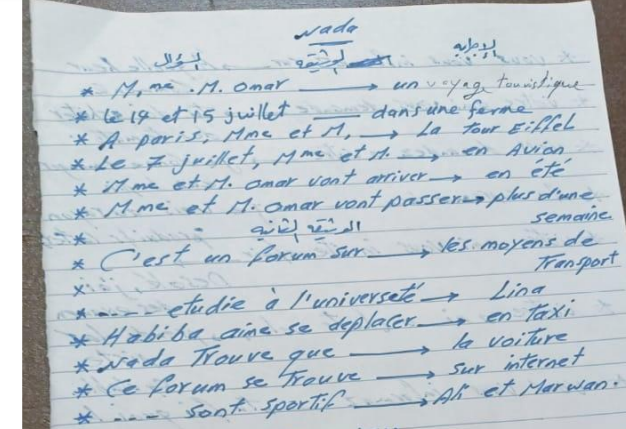 Nada
السؤال الوثيقة الإجابة
* M,me .M. omar → un voyage touristique
* Le 14 et 15 juillet — dans une ferme
* A paris, Mme et M, → La Tour Eiffel
* Le 7 juillet, Mme et M. → en Avion
* Mme et M. omar vont arriver → en été
* Mme et M. omar vont passer → plus d'une semaine
* الوثيقة الثانية
* C'est un forum sur → les moyens de Transport
x
* ---- etudie à l'universeté → Lina
* Habiba aime se deplacer → en Taxi
* Nada Trouve que → la voiture
* Ce forum se Trouve → sur internet
* ---- sont sportif → Ali et Marwan.